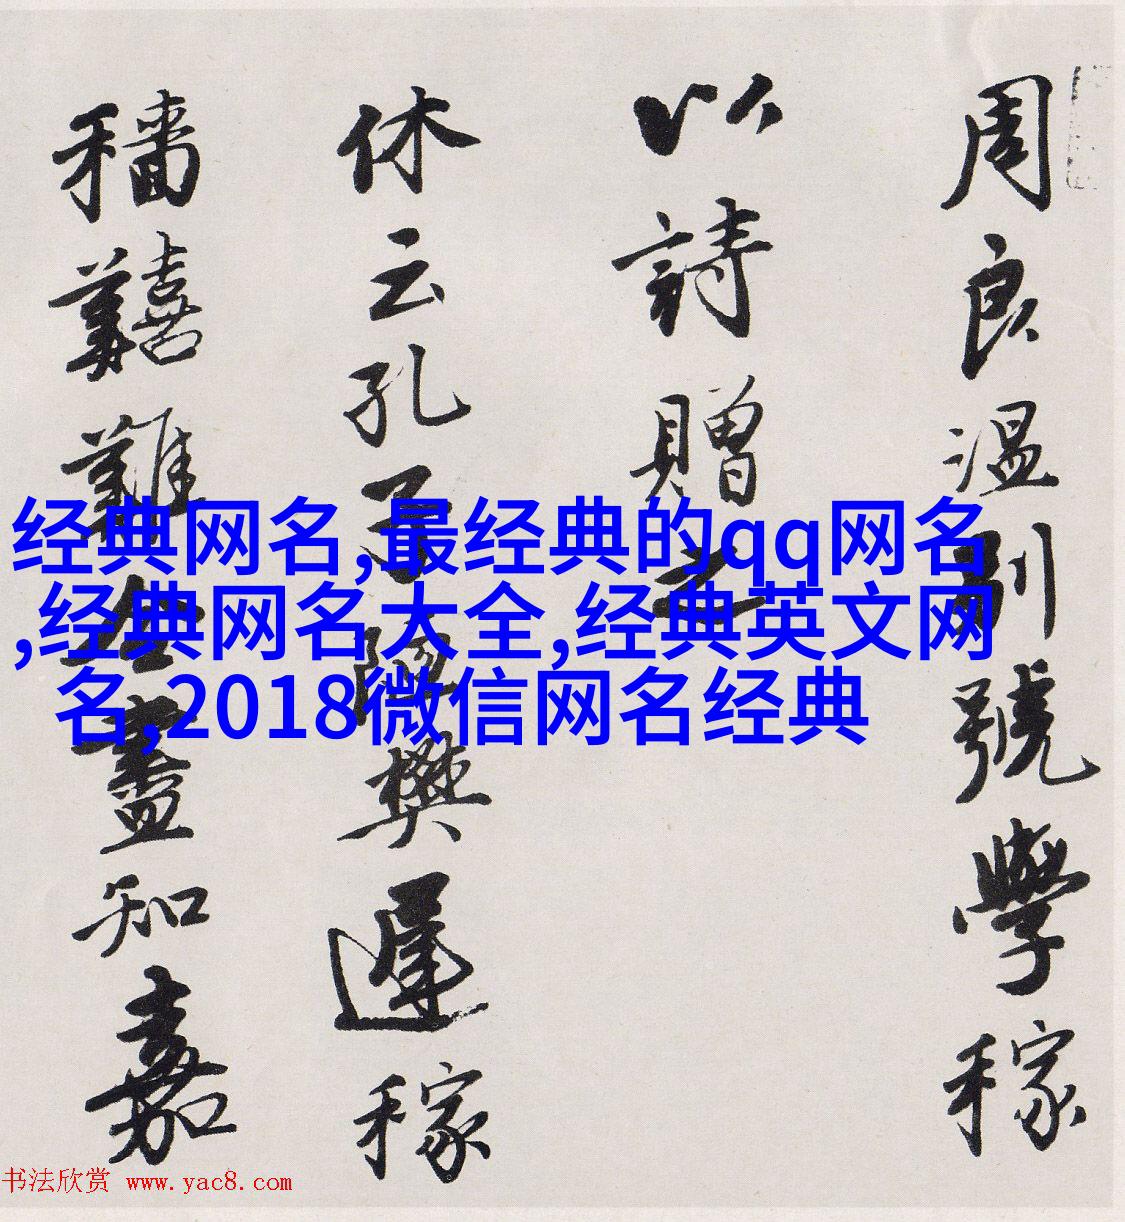 周良溫別號學稼
以詩贈之
休云孔子陋樊遲稼
穡囏難盡知嘉
经典网名,最经典的qq网名
,经典网名大全,经典英文网
名,2018微信网名经典
书法欣赏 www.yac8.com